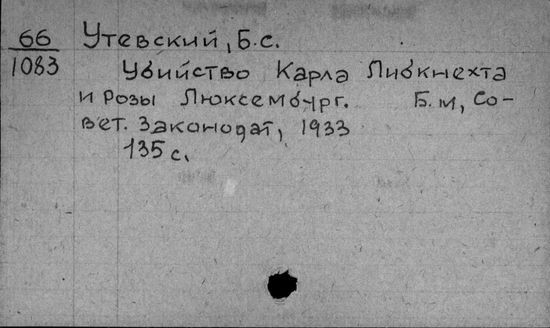 66
1083
Утевский, Б.С.
Убийство Карла Либкнехта
и Розы Люксембург. Б.м, Со-
вет. Законодат, 1933
135 с.